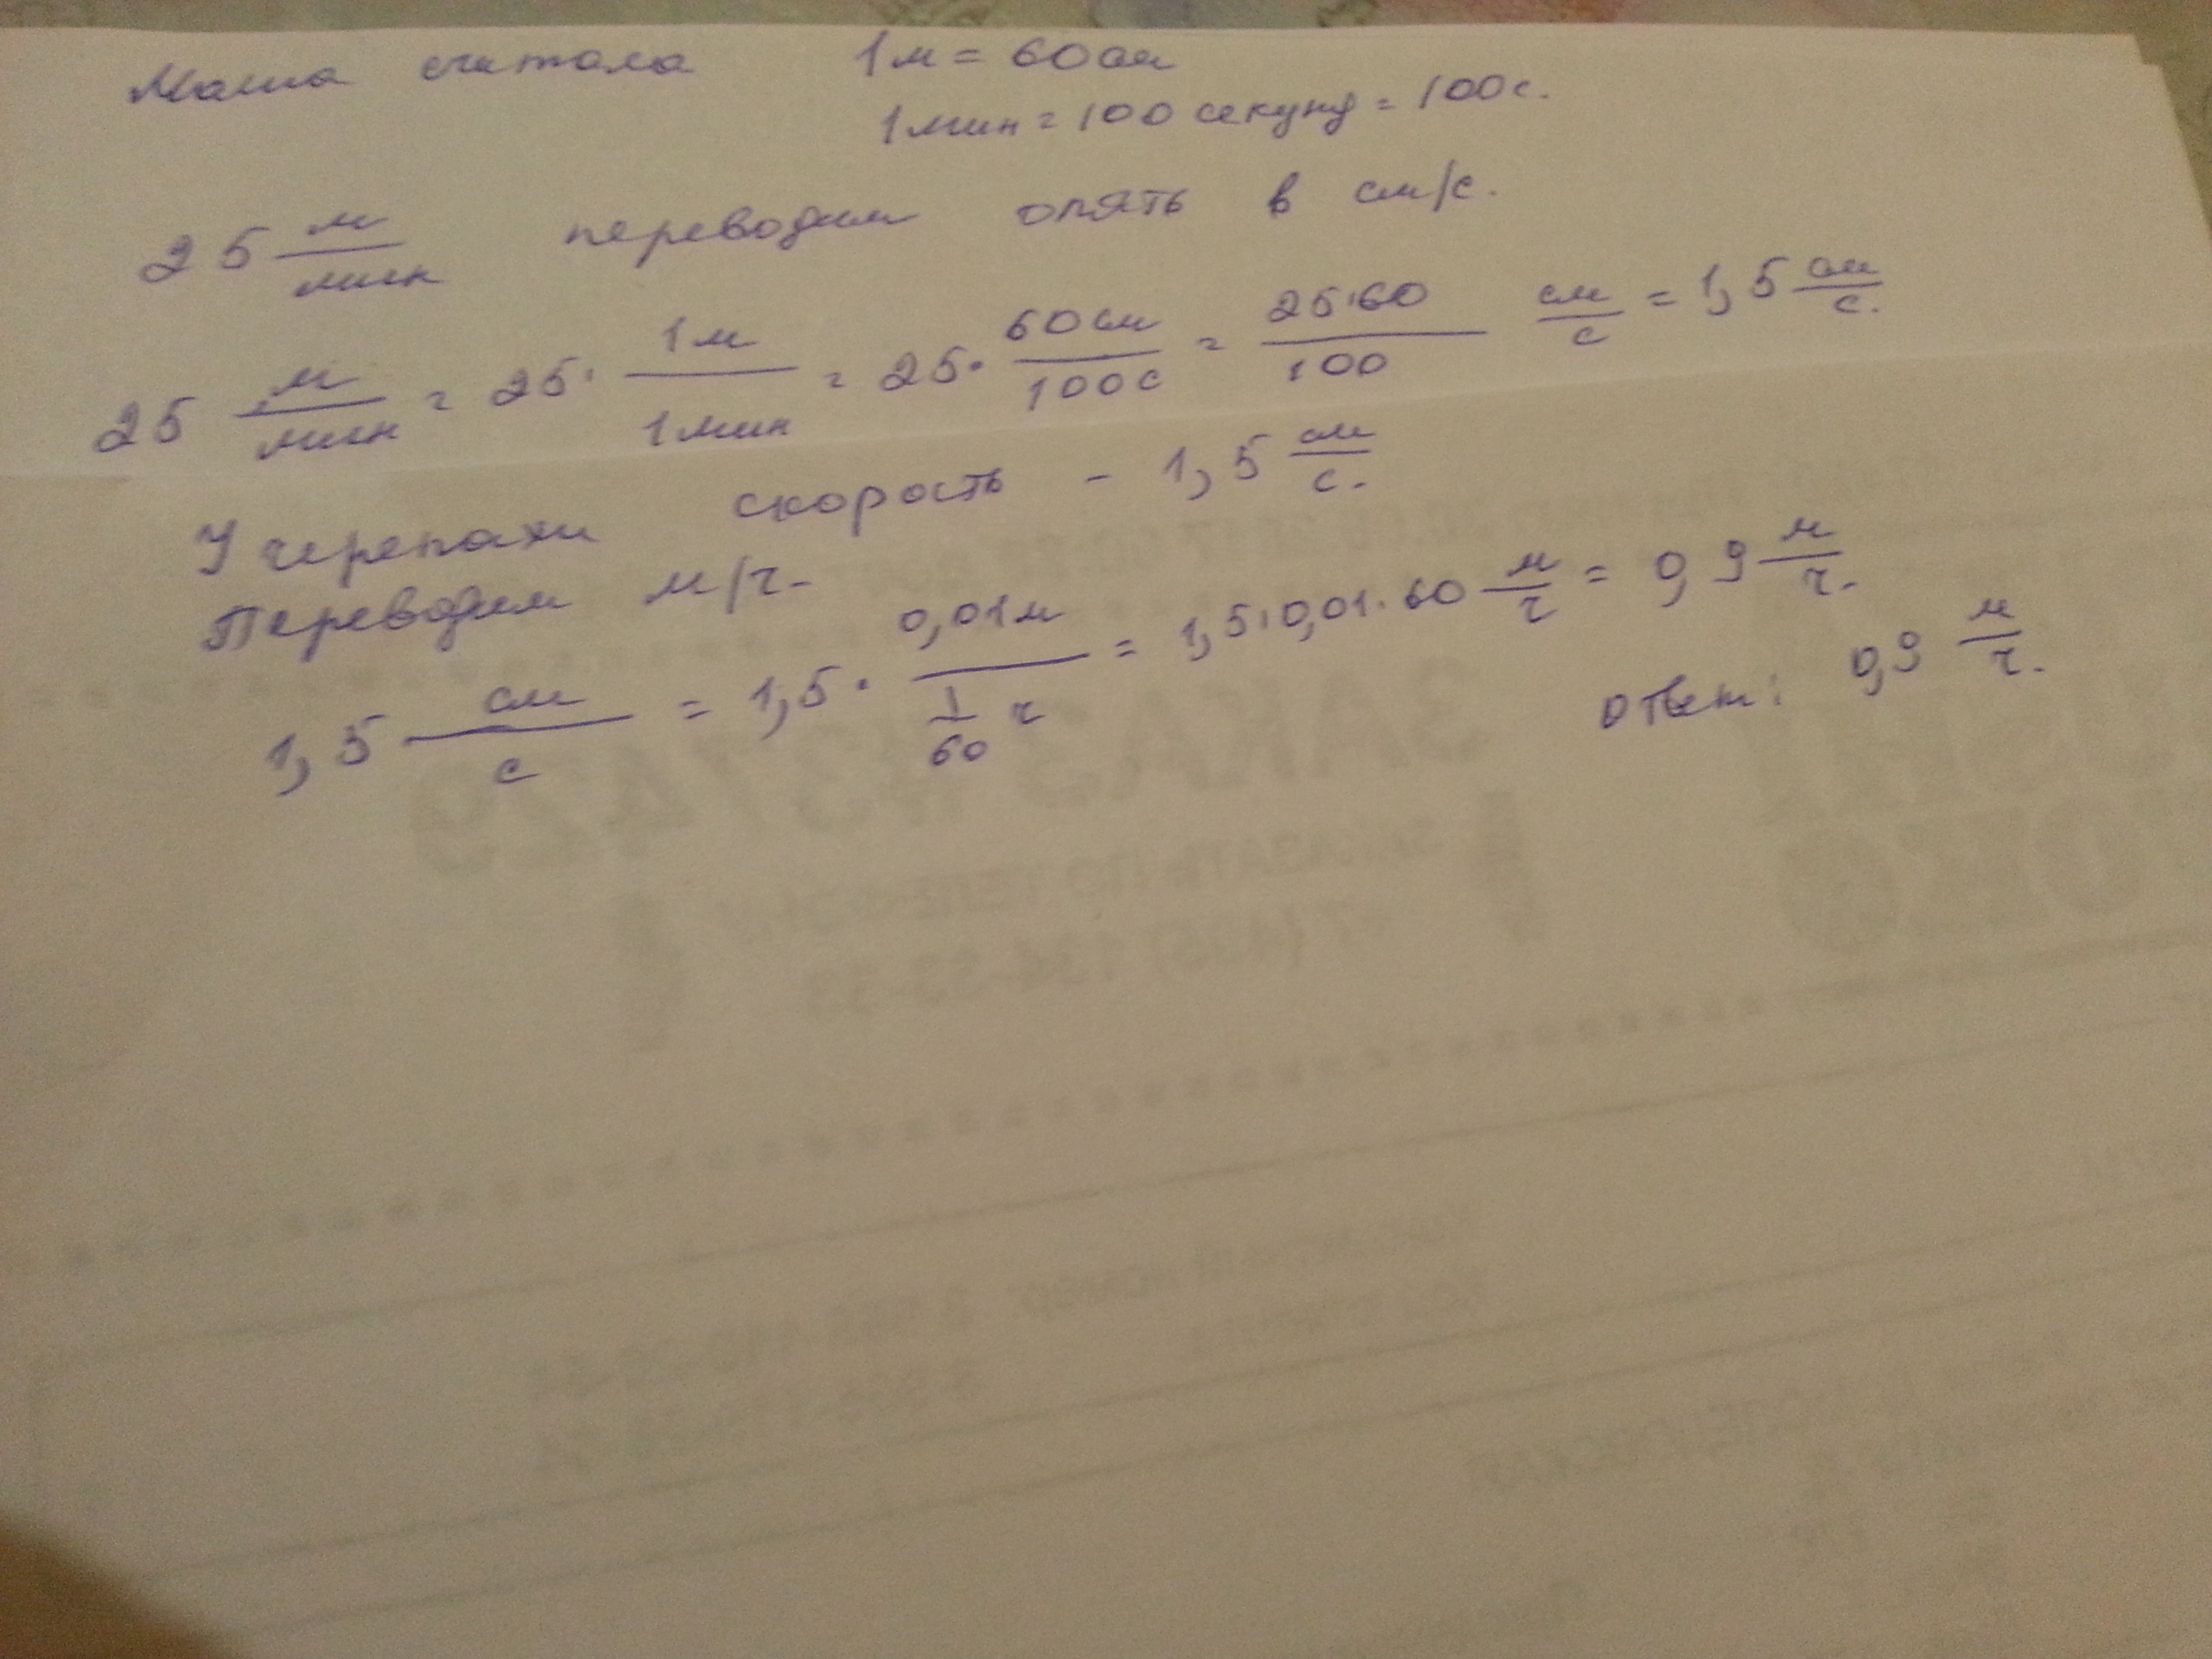 Маша считала 1м = 60см
1мин = 100 секунд = 100с.
25 м/мин переводим опять в см/с.
25 м/мин = 25· 1м/1мин = 25· 60см/100с = 25·60/100 см/с = 1,5 см/с.
У черепахи скорость - 1,5 см/с.
Переводим м/ч.
1,5 см/с = 1,5· 0,01м/(1/60 ч) = 1,5·0,01·60 м/ч = 0,9 м/ч.
Ответ: 0,9 м/ч.